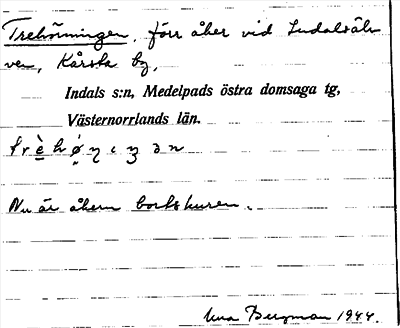 Trehörningen, förr åker vid Indalsälv
ven, Kårsta by,
Indals s:n, Medelpads östra domsaga tg,
Västernorrlands län.
Nu är åkern bortskuren.
Una Bergman 1944.